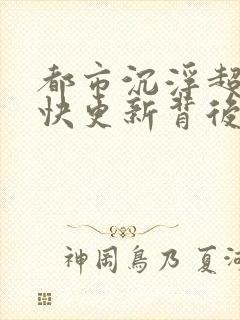 都市沉浮超
快更新背後
神岡鳥乃 夏河